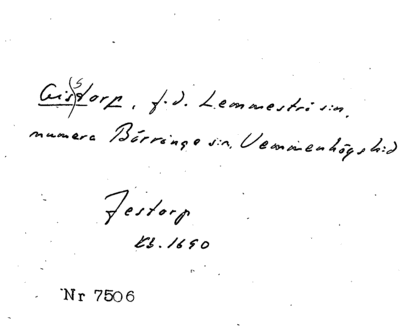 Gisstorp, f.d. Lemmeströ s:n,
numera Börringe s:n, Vemmenhögs hd
Jestorp
Kb. 1690
Nr 7506